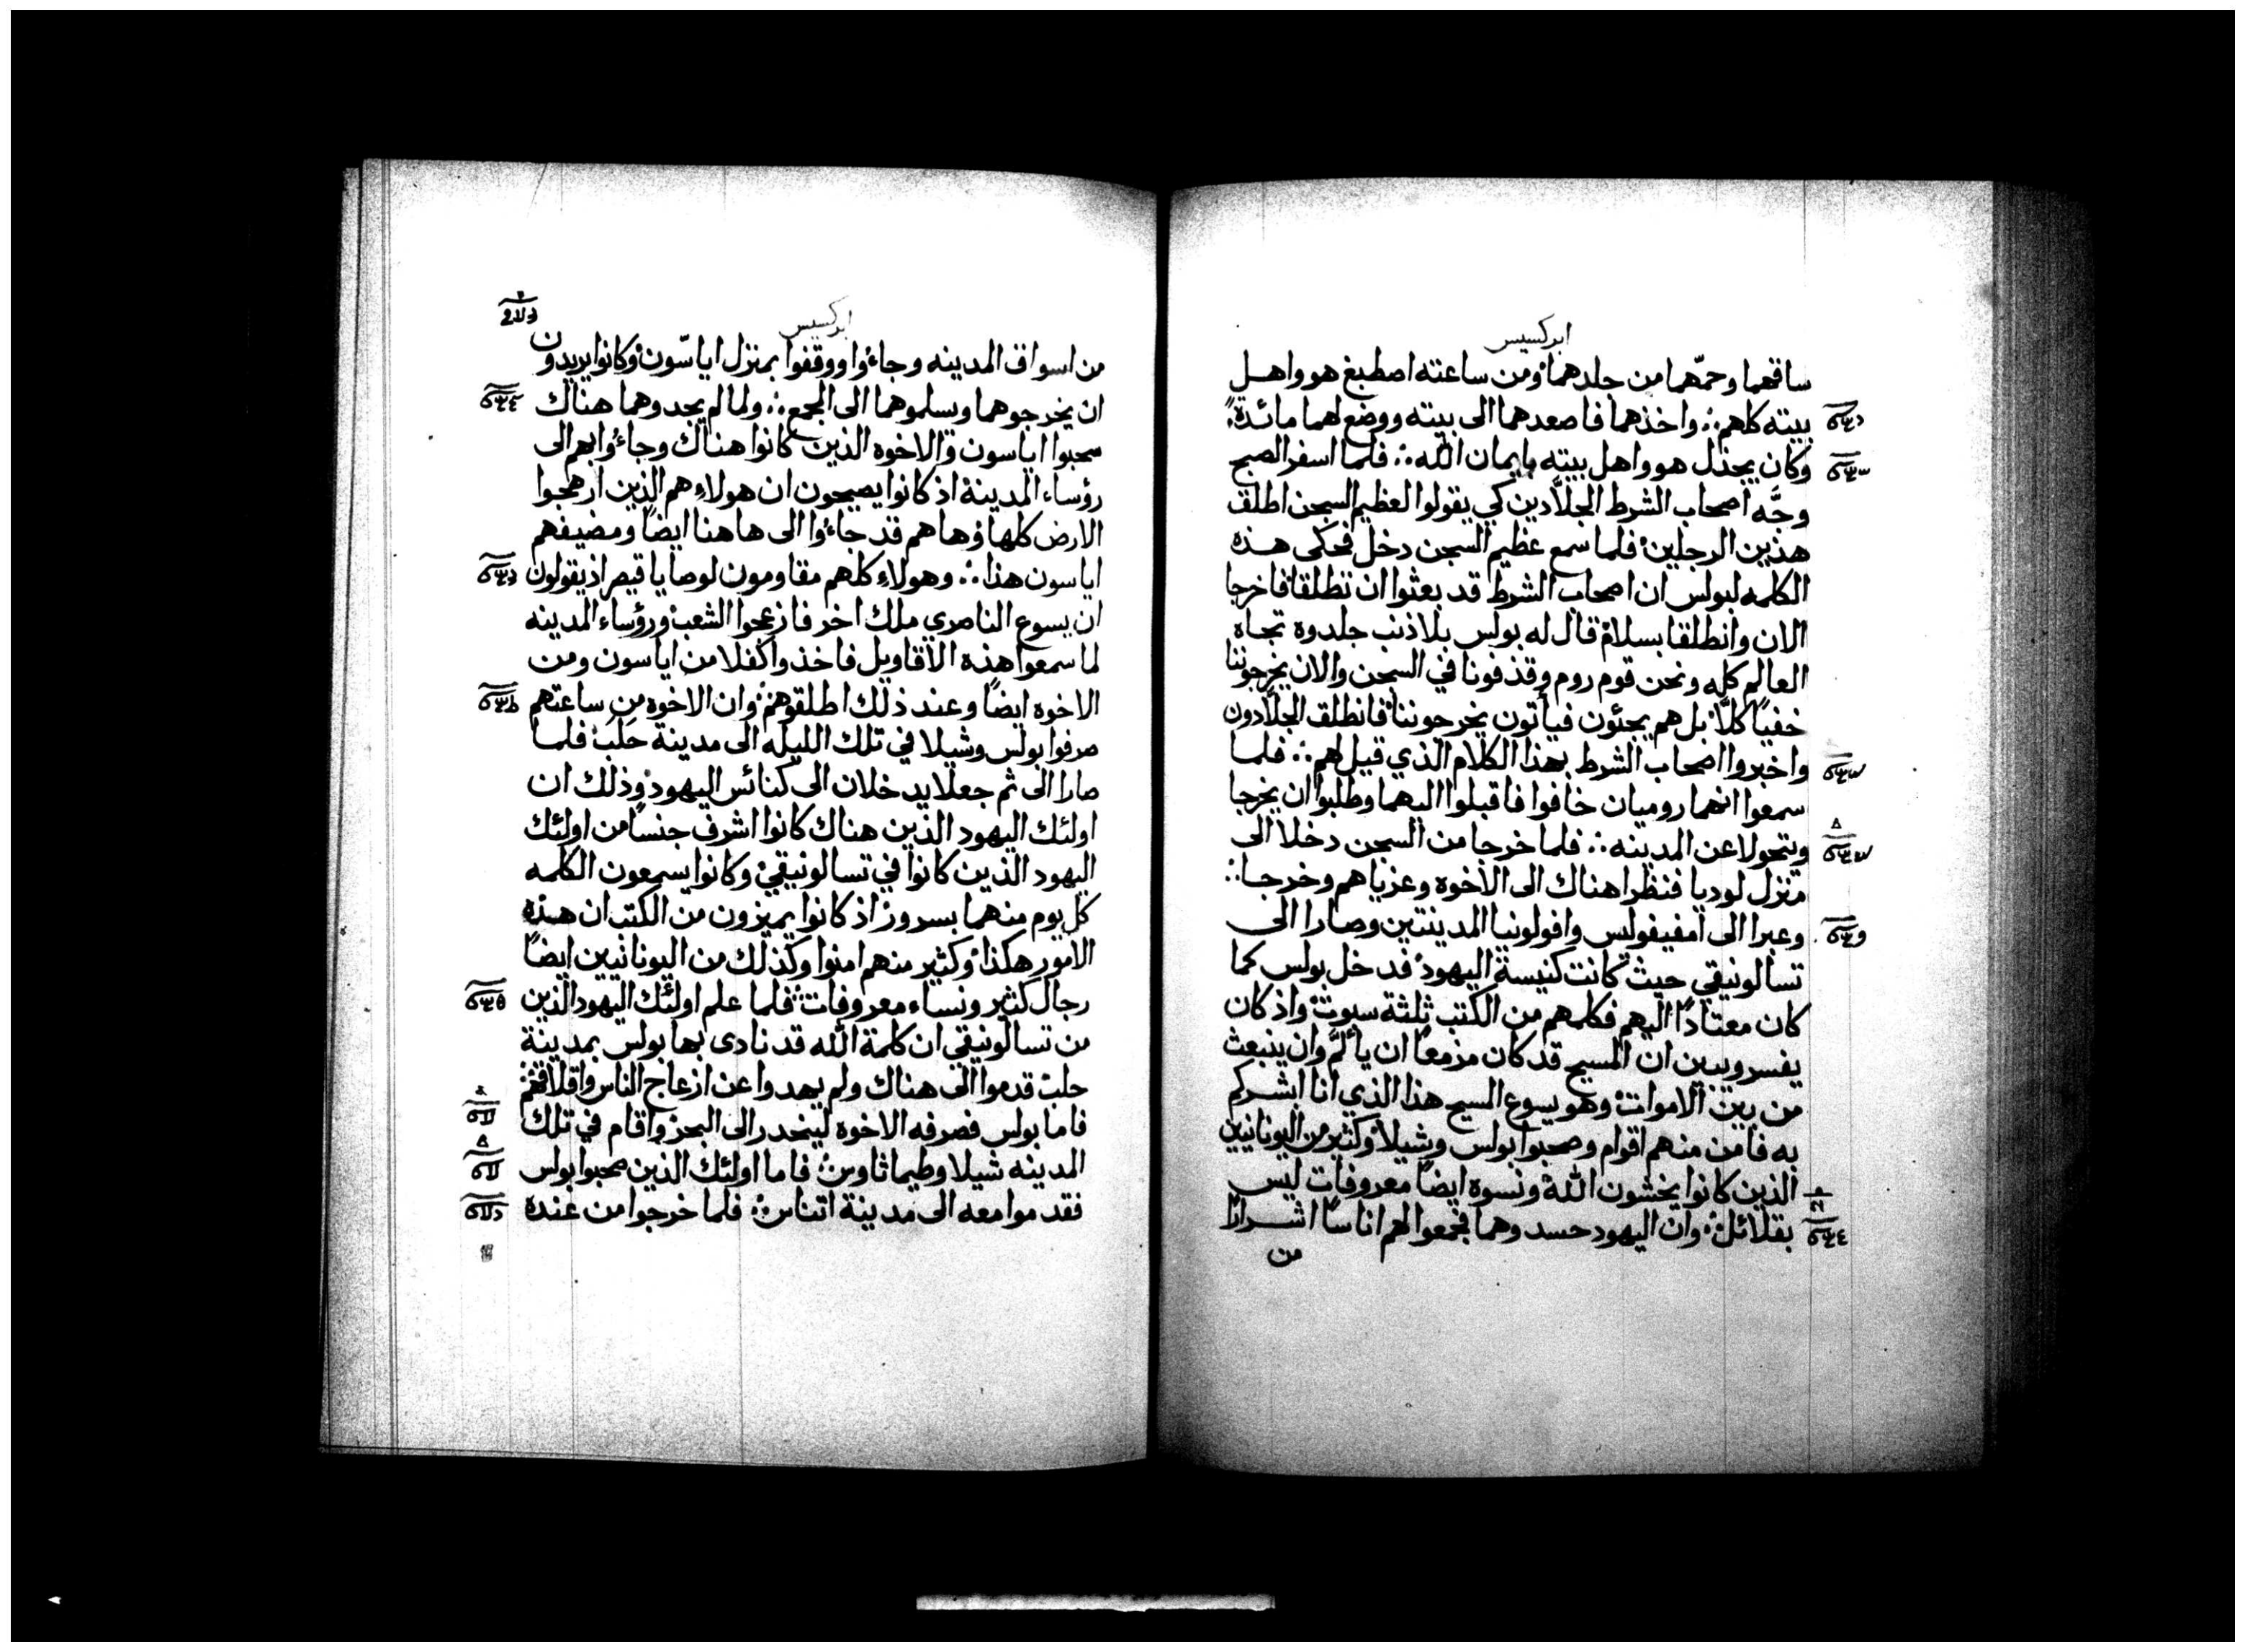 ابركسيس
ساقهما وحمّهما من جلدهما ومن ساعته اصطبغ هو واهل
بيته كلهم ∴ واخذهما فاصعدهما الى بيته ووضع لهما مائدة
وكان يجذل هو واهل بيته بايمان الله ∴ فلما اسفر الصبح
وجَّه اصحاب الشرط الجلاّدين كي يقولوا لعظيم السجن اطلق
هذين الرجلين فلما سمع عظيم السجن دخل فحكى هذه
الكلمه لبولس ان اصحاب الشرط قد بعثوا ان تطلقا فاخرجا
الان وانطلقا بسلام قال له بولس بلا ذنب جلدوه تجاه
العالم كله ونحن قوم روم وقذفونا في السجن والان يخرجوننا
خفيًا كلَّا بل هم يجئون فيأتون يخرجوننا فانطلق الجلاّدون
واخبروا اصحاب الشرط بهذا الكلام الذي قيل لهم ∴ فلما
سمعوا انهما روميان خافوا فاقبلوا اليهما وطلبوا ان يخرجا
ويتحولا عن المدينه ∴ فلما خرجا من السجن دخلا الى
منزل لوديا فنظرا هناك الى الاخوه وعزياهم وخرجا ∴
وعبرا الى امفيفوليس وافولونيا المدينتين وصارا الى
تسالونيقي حيث كانت كنيسة اليهود فدخل بولس كما
كان معتادًا اليهم فكلمهم من الكتب ثلثة سبوت واذ كان
يفسر ويبين ان المسيح قد كان مزمعًا ان يألم وان ينبعث
من بين الاموات وهو يسوع المسيح هذا الذي انا ابشركم
به فامن منهم اقوام وصحبوا بولس وشيلا وكثير من اليونانيين
الذين كانوا يخشون الله ونسوه ايضًا معروفات ليس
بقلائل وان اليهود حسدوهما فجمعوا لهم اناسًا اشرارًا
من
ابركسيس
من اسواق المدينه وجاءوا ووقفوا بمنزل اياسّون وكانوا يريدون
ان يخرجوهما ويسلموهما الى الجمع ∴ ولما لم يجدوهما هناك
سحبوا اياسون والاخوه الذين كانوا هناك وجاءوا بهم الى
رؤساء المدينة اذ كانوا يصيحون ان هولاء هم الذين ارهجوا
الارض كلها وها هم قد جاءوا الى هاهنا ايضًا ومضيفهم
اياسون هذا ∴ وهولاء كلهم مقاومون لوصايا قيصر اذ يقولون
ان يسوع الناصري ملك اخر فازعجوا الشعب ورؤساء المدينه
لما سمعوا هذه الاقاويل فاخذوا كفلا من اياسون ومن
الاخوه ايضًا وعند ذلك اطلقوهم وان الاخوه من ساعتهم
صرفوا بولس وشيلا في تلك الليله الى مدينة حلب فلما
صارا الى ثم جعلا يدخلان الى كنائس اليهود وذلك ان
اولئك اليهود الذين هناك كانوا اشرف جنسًا من اولئك
اليهود الذين كانوا في تسالونيقي وكانوا يسمعون الكلمه
كل يوم منهما بسرور اذ كانوا يميزون من الكتب ان هذه
الامور هكذا وكثير منهم امنوا وكذلك من اليونانيين ايضًا
رجال كثير ونساء معروفات فلما علم اولئك اليهود الذين
من تسالونيقي ان كلمة الله قد نادى بها بولس بمدينة
حلب قدموا الى هناك ولم يهدوا عن ازعاج الناس واقلاقهم
فاما بولس فصرفه الاخوه لينحدر الى البحر واقام في تلك
المدينه شيلا وطيماثاوس فاما اولئك الذين صحبوا بولس
فقدموا معه الى مدينة اثناس فلما خرجوا من عنده